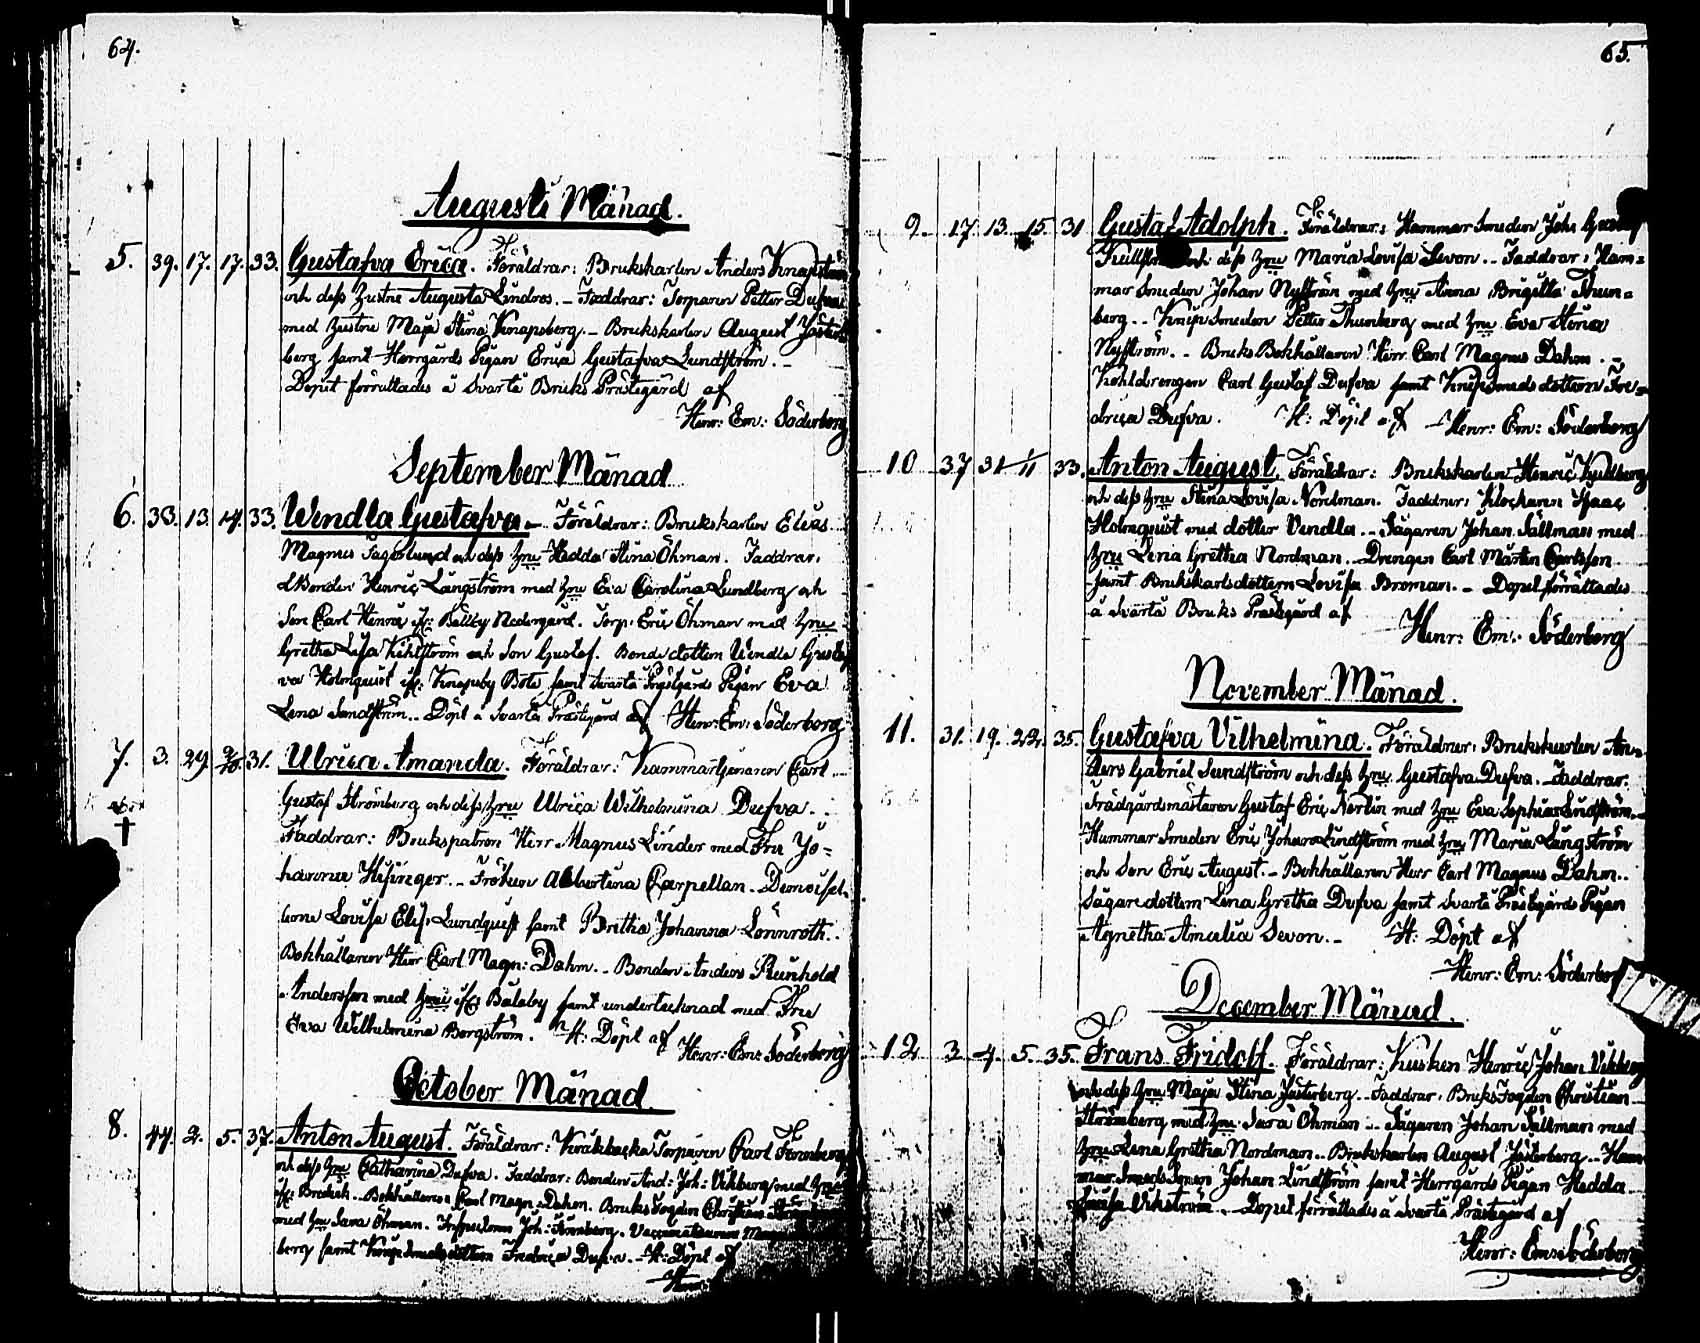 64.
Augusti Månad.
5. 39. 17. 17. 33. Gustafva Erica. Föräldrar: Brukskarlen Anders
och dess hustru Augusta Lindros. – Faddrar: Torparen Petter Dufva
med hustru Maja Stina Knapsberg. – Brukskarlen August Jäster-
berg samt Herrgårds Pigan Erica Gustafva Lundström. –
Dopet förrättades å Svartå Bruks Prästegård af
Henr: Em: Söderborg
September Månad
6. 33. 13. 14. 33. Wendla Gustafva. – Föräldrar: Brukskarlen Elias
Magnus Fagerlund och dess hru Hedda Stina Öhman. Faddrar:
Bonden Henric Långström med hru Eva Carolina Lundberg och
Son Carl Henric fr: Bälby Nedergård. Torp: Eric Öhman med hru
Gretha Lisa Kihlström och Son Gustaf. Bondedottern Wendla Gustaf
va Holmquist fr: Knapsby Böle samt Svartå Prästgårds Pigan Eva
Lena Sandström. – Döpt å Svartå Prästgård af Henr: Em: Söderborg
7. 3. 29. 31. Ulrica Amanda. Föräldrar: Kammartjenaren Carl
Gustaf Strömberg och dess hru Ulrica Wilhelmina Dufva.
†
Faddrar: Brukspatron Herr Magnus Linder med Fru Jo=
hanna Hisinger. – Fröken Albertina Carpellan. – Demoisel-
lerne Lovisa Elis: Lundquist samt Bretha Johanna Lönnroth. –
Bokhållaren Herr Carl Magn: Dahm. – Bonden Anders Reinhold
Andersson med hru fr: Bälaby samt undertecknad med Fru
Eva Wilhelmina Borgström. H: Döpt af Henr: Em: Söderborg
October Månad.
8. 44. 2. 5. 37. Anton August. Föräldrar: Torparen Carl
och dess hru Catharina Dufva. Faddrar: Bonden And: Joh: Vikberg med hru
fr: Bredvik. – Bokhållaren Carl Magn: Dahm. Bruks Fogden Christian
med hru Sara Öhman. Joh: Vaccinatuuren
berg samt Knipsmedsdottern Fredrica Dufva. – H: Döpt af
Henr:
65.
9. 17. 13. 15. 31. Gustaf Adolph. Föräldrar: Hammar Smeden Joh: Gustaf
och dess hru Maria Lovisa Sevon. – Faddrar: Ham=
mar Smeden Johan Nyström med hru Anna Brigitta Thun=
berg. – Knipsmeden Petter Thunberg med hru Eva Stina
Nyström. – Bruks Bokhållaren Herr Carl Magnus Dahm. –
Kohldrengen Carl Gustaf Dufva samt Knipsmedsdottern Fre=
drica Dufva. H: Döpt af Henr: Em: Söderborg
10 37 31 1/11 33. Anton August. Föräldrar: Brukskarlen Henric
och dess hru Stina Lovisa Nordman. Faddrar: Klockaren Isaac
Holmquist med dotter Vendla. – Sågaren Johan Sällman med
hru Lena Gretha Nordman. – Drengen Carl Mårten Carlsson
samt Brukskarlsdottern Lovisa Broman. – Dopet förrättades
å Svartå Bruks Prästgård af
Henr: Em: Söderborg
November Månad.
11. 31. 19. 22. 35. Gustafva Vilhelmina. Föräldrar: Brukskarlen An=
ders Gabriel Sundström och dess hru Gustafva Dufva. – Faddrar:
Trädgårdsmästaren Gustaf Eric Norlin med hru Eva Sophia Lindström. –
Hammar Smeden Eric Johan Lindström med hru Maria Långström
och Son Eric August. – Bokhållaren Herr Carl Magnus Dahm. –
Sågaredottern Lena Gretha Dufva samt Svartå Prästgårds Pigan
Agnetha Amalia Sevon. – H: Döpt af
Henr: Em: Söderborg
December Månad.
12 3. 4. 5. 35. Frans Fridolf. Föräldrar: Kusken Henric Johan Vikberg
och dess hru Maja Stina Jästerberg. – Faddrar: Bruks Fogden Christian
Strömberg med hru Sara Öhman. – Sågaren Johan Sällman med
hru Lena Gretha Nordman. – Brukskarlen August Jästerberg. – Ham
mar Smeds Sonen Johan Lindström samt Herrgårds Pigan Hedda
Lovisa Vikström. – Dopet förrättades å Svartå Prästgård af
Henr: Em: Söderborg